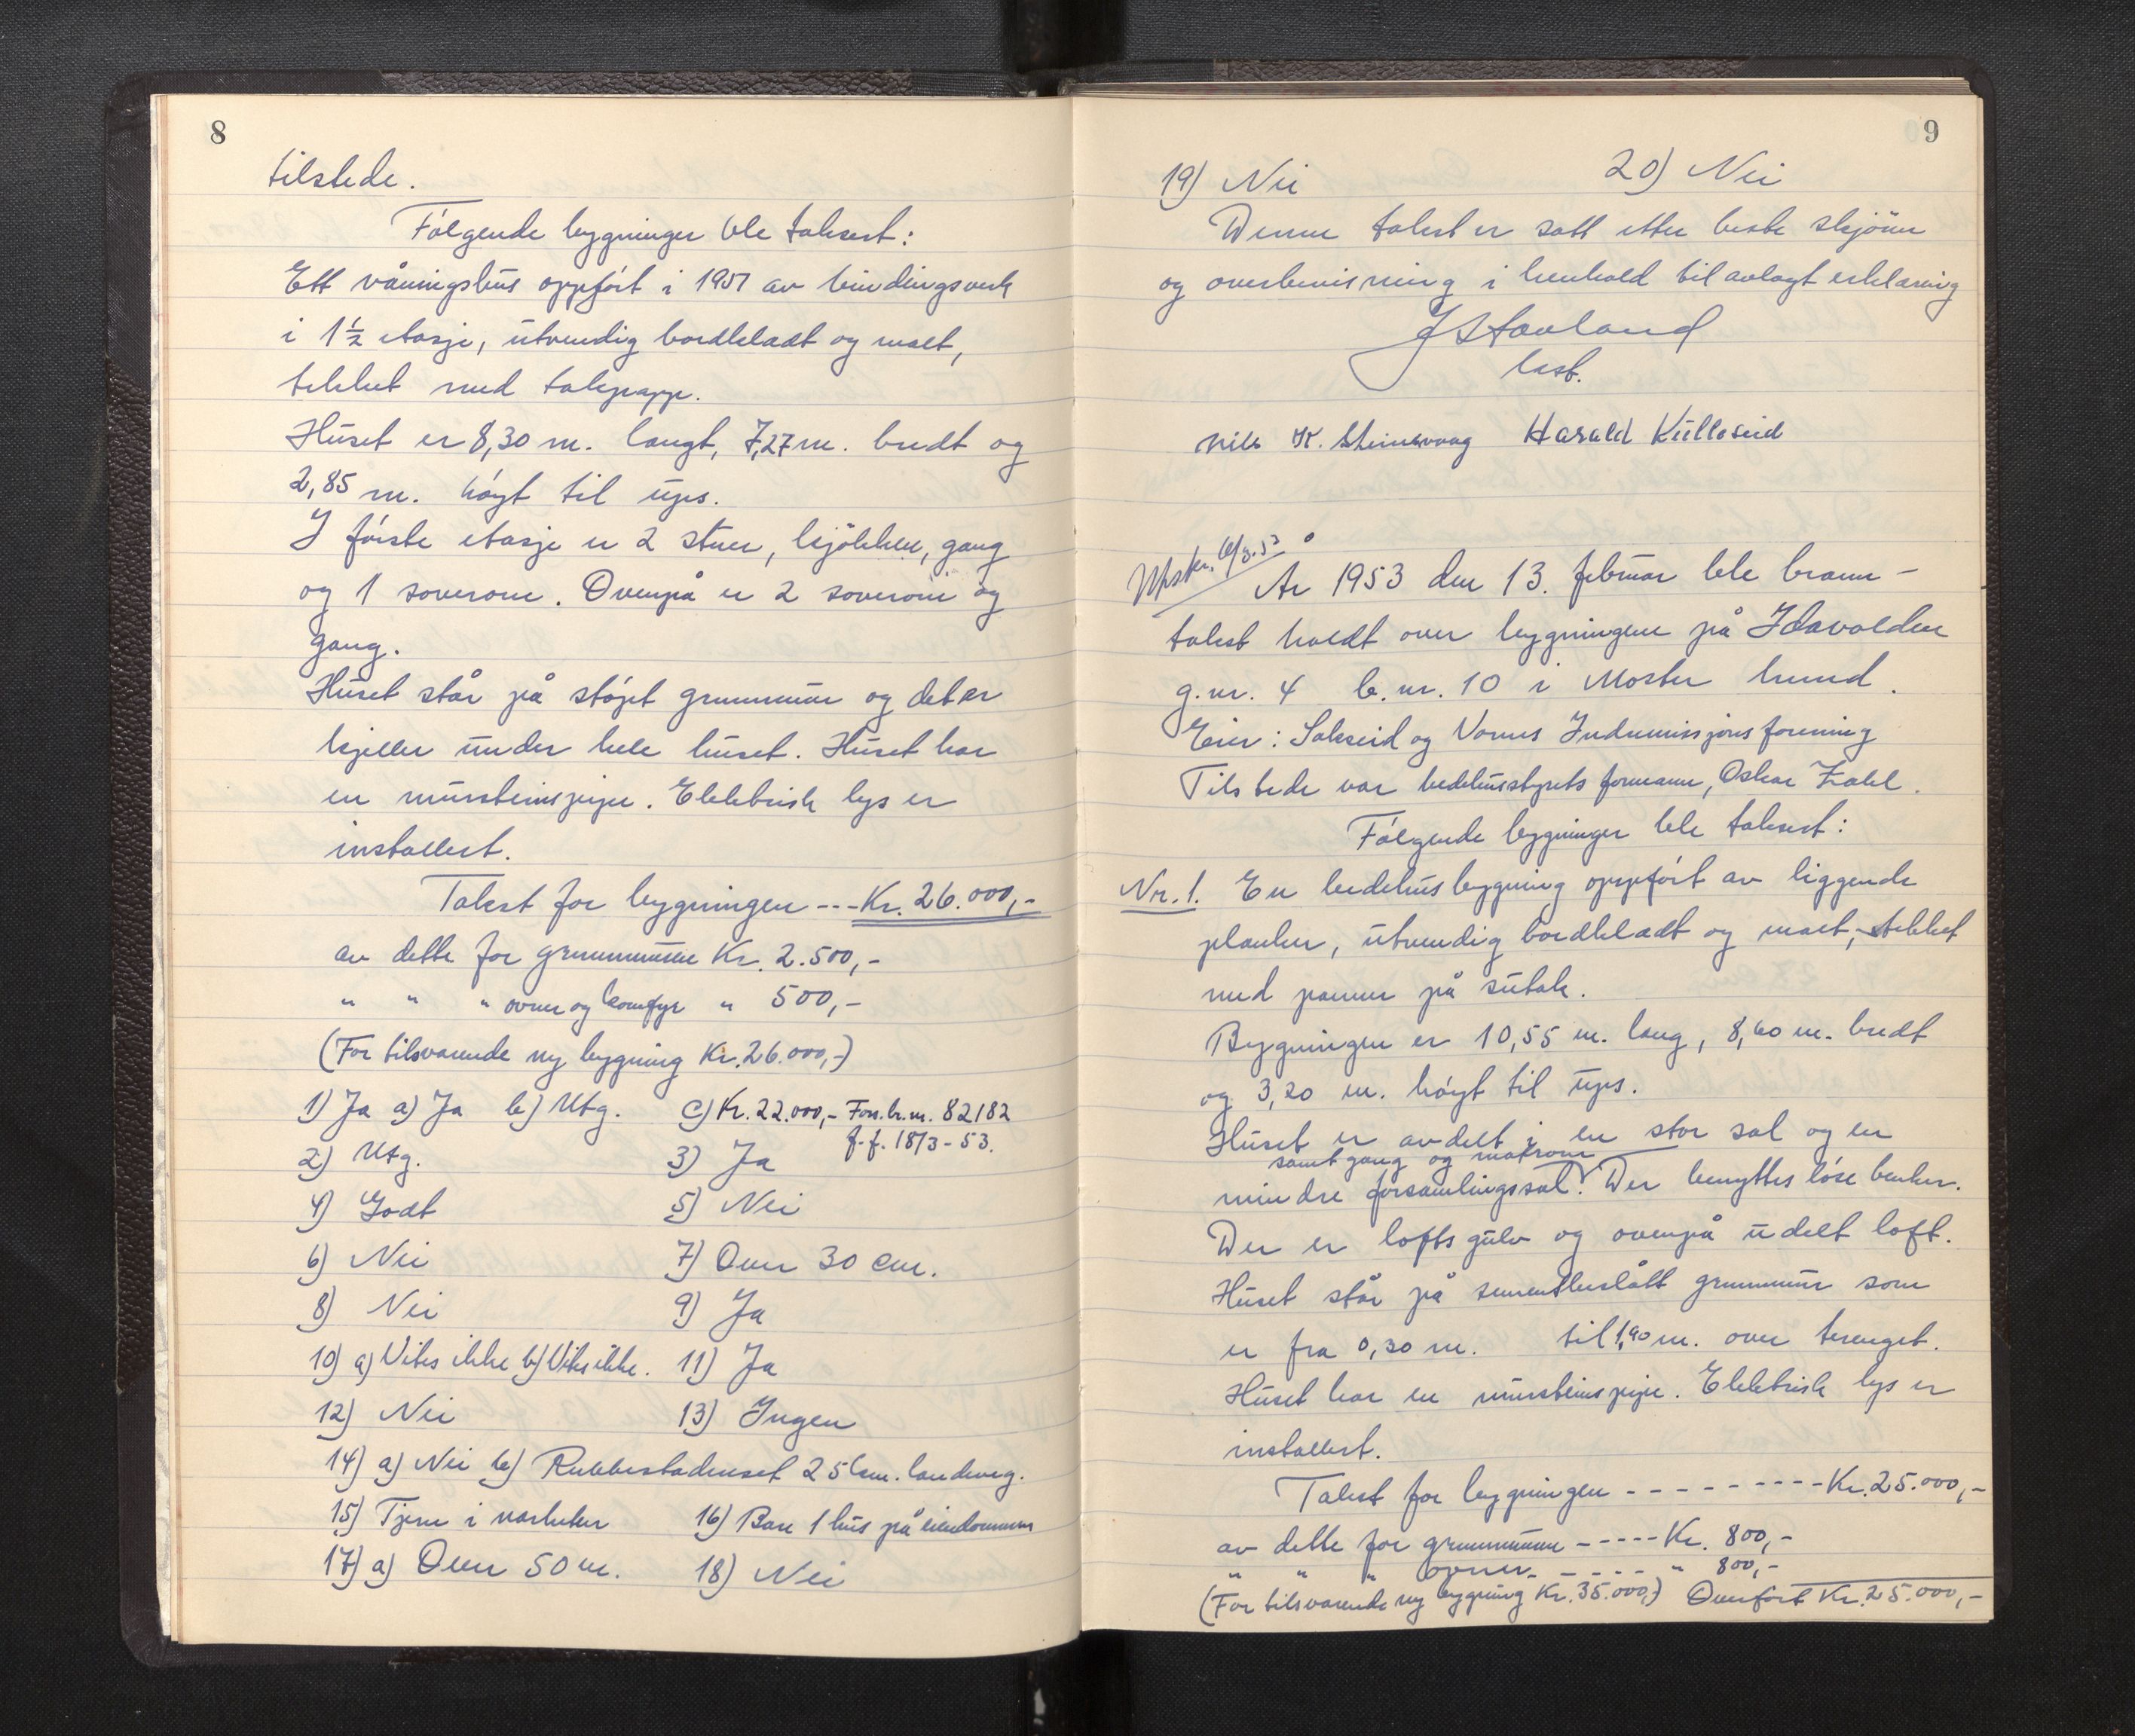 8
tilstede.
Følgende bygninger ble taksert:
Ett våningshus oppført i 1951 av bindingsverk
i 1½ etasje, utvendig bordkladt og malt,
tekket med takpapp.
Huset er 8,30 m. langt, 7,27 m. bredt og
2,85 m. høyt til ups.
I første etasje er 2 stuer, kjøkken, gang
og 1 soverom. Ovenpå er 2 soverom og
gang.
Huset står på støpt grunnmur og det er
kjeller under hele huset. Huset har
en mursteinspipe. Elektrisk lys er
installert.
Takst for bygningen --- Kr. 26.000,-
av dette for grunnmuren Kr. 2.500,-
" " " ovner og komfyr " 500,-
(For tilsvarende ny bygning Kr. 26.000,-)
1) Ja a) Ja b) Utg. c) Kr. 22.000,- Fors.br.nr. 82182
f.f. 18/3-53.
2) Utg. 3) Ja
4) Godt 5) Nei
6) Nei 7) Over 30 cm.
8) Nei 9) Ja
10) a) Vites ikke b) Vites ikke. 11) Ja
12) Nei 13) Ingen
14) a) Nei b) Rubbestadneset 25 km. landveg.
15) Tjern i nærheten 16) Bare 1 hus på eiendommen
17) a) Over 50 m. 18) Nei
9
19) Nei 20) Nei
Denne takst er satt etter beste skjønn
og overbevisning i henhold til avlagt erklæring
J Stavland
lensm.
Nils K. Steinsvaag Harald Kulleseid
Utskr. 6/3.53
År 1953 den 13. februar ble brann-
takst holdt over bygningene på Idavolden
g.nr. 4 b.nr. 10 i Moster herred.
Eier: Sakseid og Vornes Indremisjonsforening
Tilstede var bedehusstyrets formann, Oskar Zahl.
Følgende bygninger ble taksert:
Nr. 1. En bedehusbygning oppført av liggende
planker, utvendig bordkladt og malt, tekket
med panner på sutak.
Bygningen er 10,55 m. lang, 8,60 m. bredt
og 3,20 m. høyt til ups.
Huset er avdelt i en stor sal og en
samt gang og matrom
mindre forsamlingssal. Der benyttes løse benker.
Der er loftsgulv og ovenpå udelt loft.
Huset står på sementhuslått grunnmur som
er fra 0,30 m. til 1,90 m. over terenget.
Huset har en mursteinspipe. Elektrisk lys er
installert.
Takst for bygningen --------- Kr. 25.000,-
av dette for grunnmuren ----- Kr. 800,-
" " " ovner ----- " 800,-
(For tilsvarende ny bygning Kr. 35.000,-) Overført Kr. 25.000,-